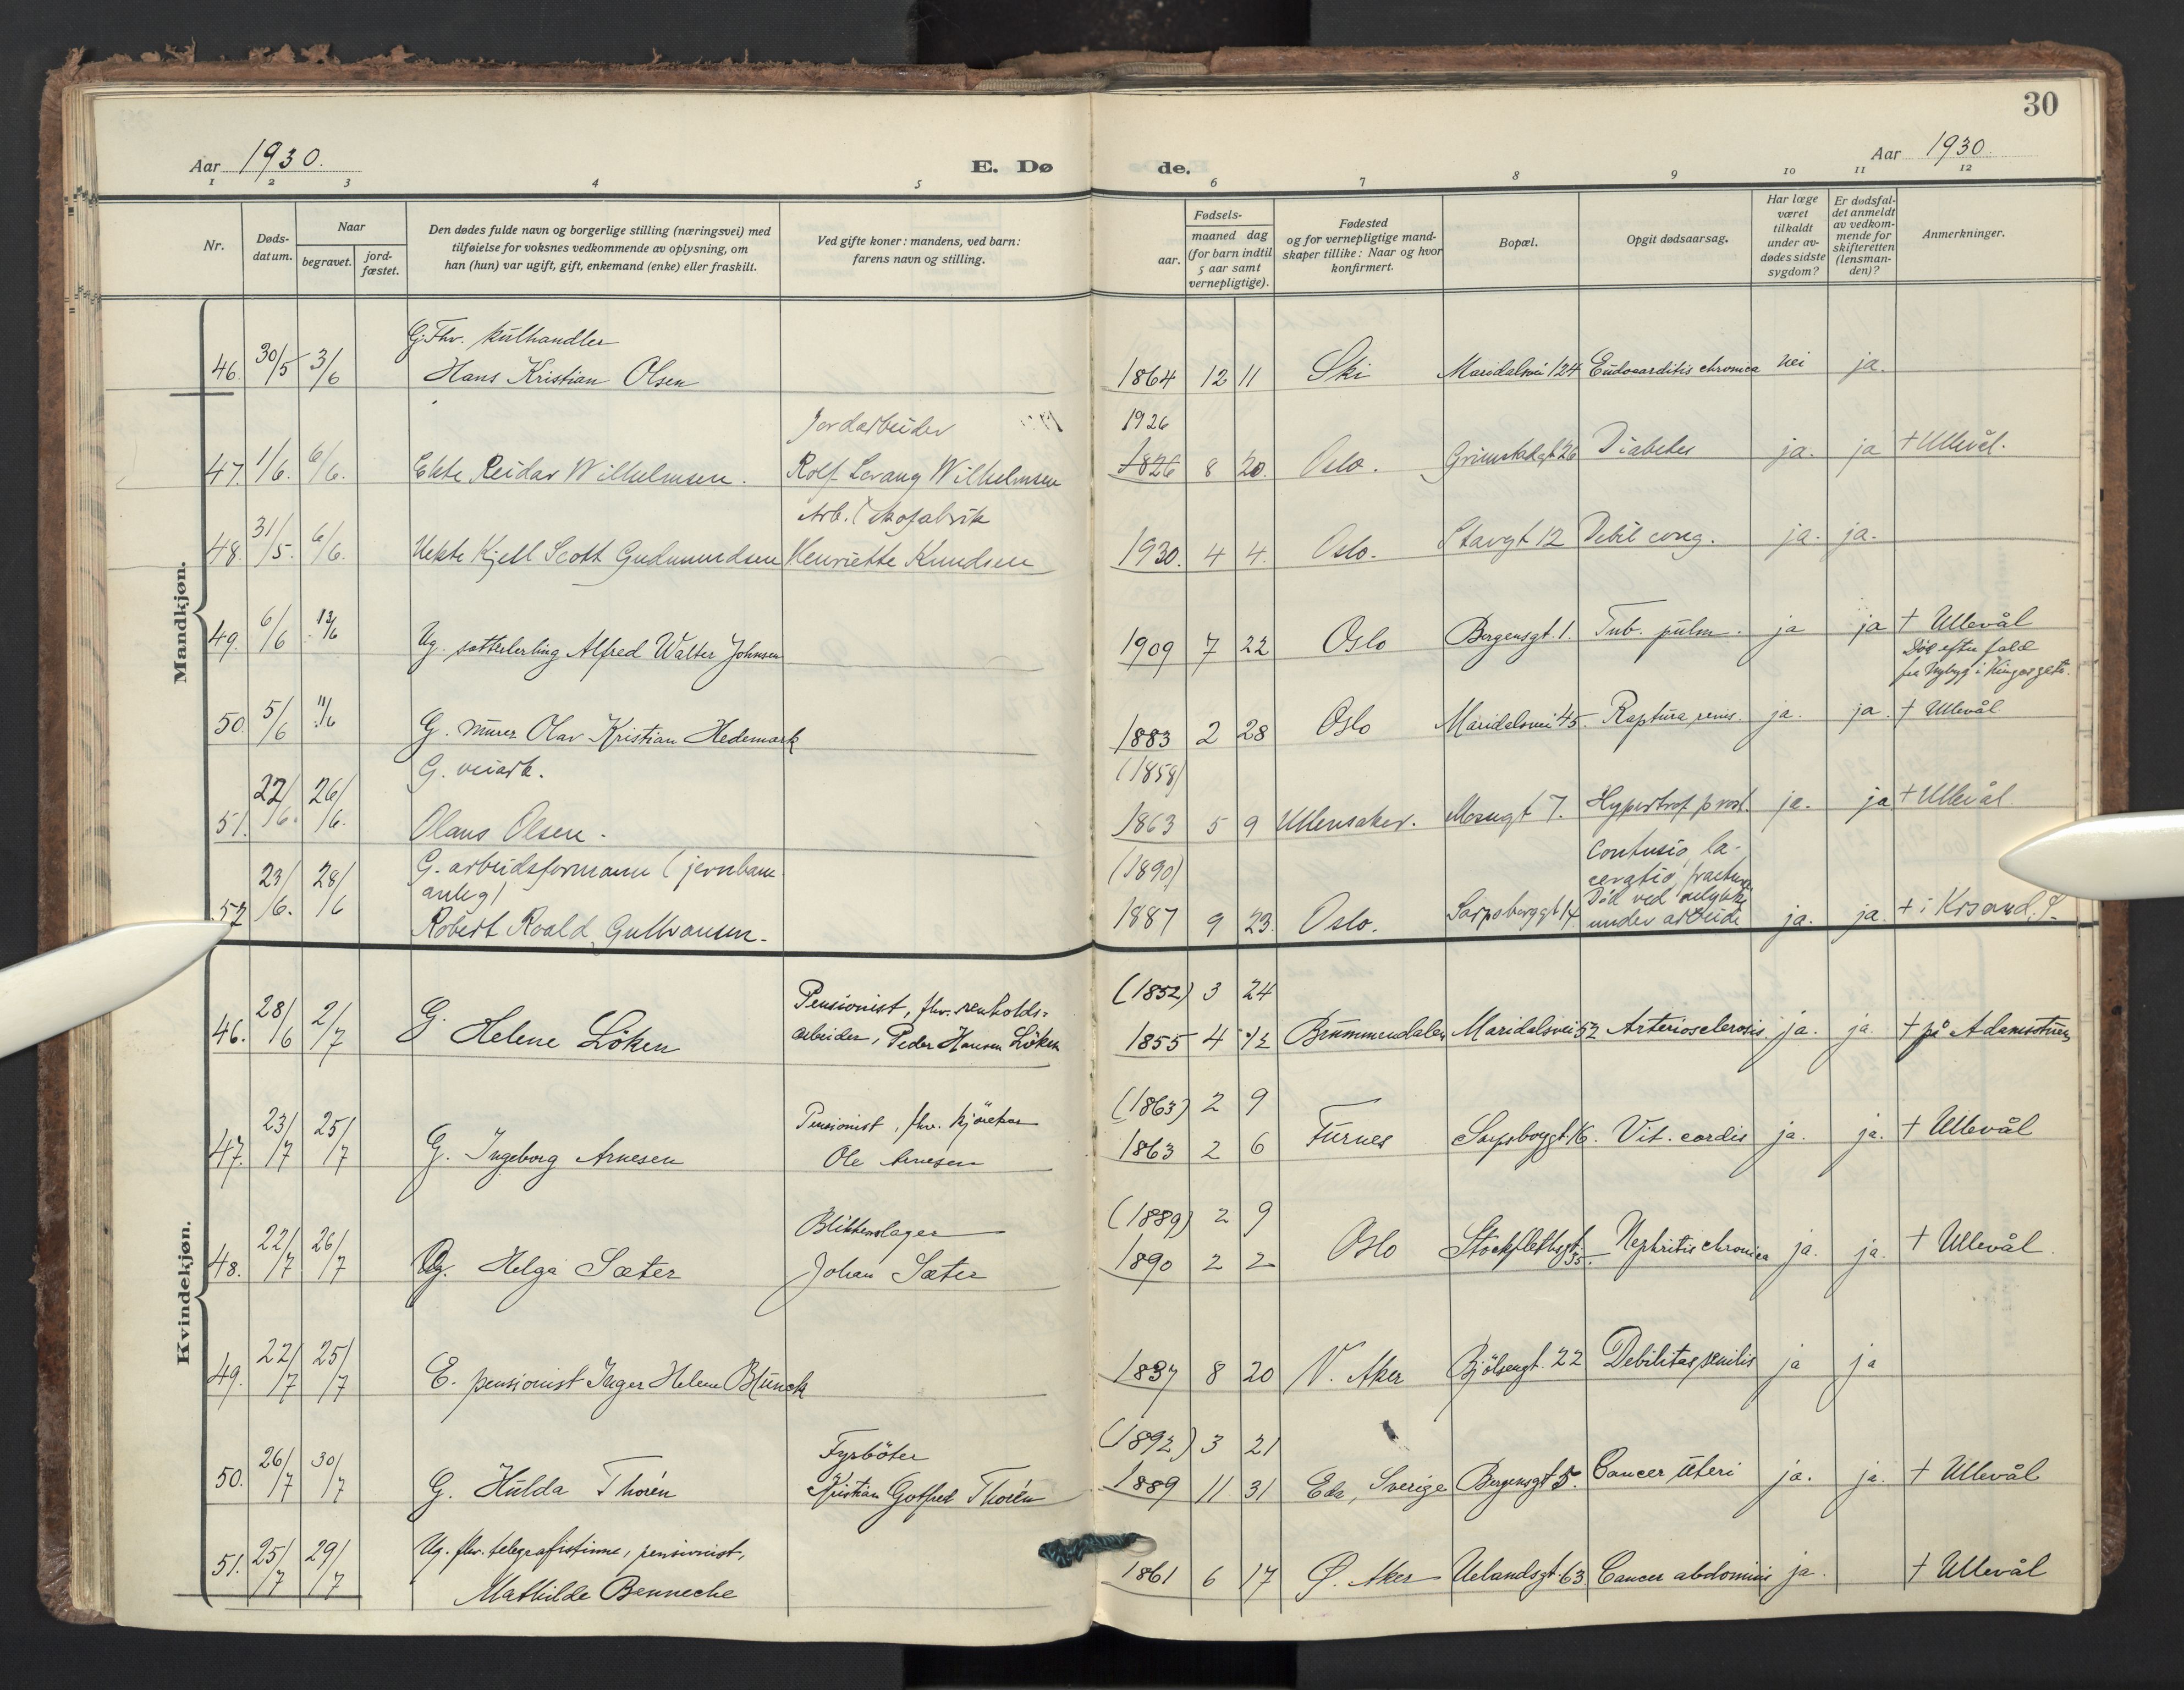 30
Aar 1930.
E. Dø
de.
Aar 1930.
1 2 3 4 5 6 7 8 9 10 11 12
Nr.
Døds-
datum.
Naar
begravet.
jord-
fæstet.
Den dødes fulde navn og borgerlige stilling (næringsvei) med
tilføielse for voksnes vedkommende av oplysning, om
han (hun) var ugift, gift, enkemand (enke) eller fraskilt.
Ved gifte koner: mandens, ved barn:
farens navn og stilling.
Fødsels-
aar.
maaned dag
(for barn indtil
5 aar samt
vernepligtige).
Fødested
og for vernepligtige mand-
skaper tillike: Naar og hvor
konfirmert.
Bopæl.
Opgit dødsaarsag.
Har læge
været
tilkaldt
under av-
dødes sidste
sygdom?
Er dødsfal-
det anmeldt
av vedkom-
mende for
skifteretten
(lensman-
den)?
Anmerkninger.
Mandkjøn.
G. Fhv. kulhandler
46. 30/5 3/6 Hans Kristian Olsen 1864 12 11 Ski Maridalsvei 124 Endocarditis chronica nei ja.
Jordarbeider 1926
47. 1/6. 6/6. Ekte Reidar Wilhelmsen. Rolf Levang Wilhelmsen 1826 8 20. Oslo. Grimstadgt 26 Diabetes ja. ja + Ullevål.
Arb. i skofabrik
48. 31/5. 6/6. Uekte Kjell Scott Gudmundsen Henriette Knudsen 1930. 4 4. Oslo. Stavgt 12 Debil cong. ja. ja.
49. 6/6 13/6 Ug. sætterlærling Alfred Walter Johnsen 1909 7 22 Oslo Bergensgt. 1. Tub. pulm. ja ja + Ullevål
Död efter fald
fra Nybyg i Kingosgate.
50. 5/6 11/6 G. murer Olav Kristian Hedemark 1883 2 28 Oslo Maridalsvei 45. Ruptura renis. ja. ja. + Ullevål
G. veiarb. (1858)
51. 22/6. 26/6. Olaus Olsen. 1863 5 9 Ullensaker. Mosugt 7. Hypertrof. prost. ja. ja + Ullevål.
G. arbeidsformann (jernbane-
anlegg) (1890) Contusio, la-
ceratio, fractura
Död ved ulykke
52 23/6. 28/6 Robert Roald Gulbransen. 1887 9 23. Oslo. Sarpsborggt 14. under arbeide ja. ja. + i Krsand. S.
Kvindekjøn.
Pensionist, fhv. renholds- (1852) 3 24
46. 28/6 2/7 G. Helene Löken arbeider, Peder Hansen Löken 1855 4 1/2 Brummendalen Maridalsvei 52 Arteriosclerosis. ja. ja. + på Adamstuen
Pensionist, fhv. kjörekar (1863) 2 9
47. 23/7 25/7 G. Ingeborg Arnesen Ole Arnesen 1863 2 6 Furnes Sarpsborggt. 16. Vit. cordis ja. ja. + Ullevål
Blikkenslager (1889) 2 9
48. 22/7 26/7 G. Helga Sæter Johan Sæter 1890 2 2 Oslo Stockflethsgt 35. Nephritis chronica ja. ja. + Ullevål.
49. 22/7 25/7 E. pensionist Inger Helene Blunck 1837 8 20 V. Aker Bjölsengt. 22 Debilitas senilis ja ja
Fyrböter (1892) 3 21
50. 26/7 30/7 G. Hulda Thorén Kristian Gotfred Thorén 1889 11 31 Eda, Sverige Bergensgt 5. Cancer uteri ja. ja. + Ullevål
Ug. fhv. telegrafistinne, pensionist,
51. 25/7 29/7 Mathilde Bennecke 1861 6 17 Ø. Aker Uelandsgt. 63 Cancer abdominis ja. + Ullevål